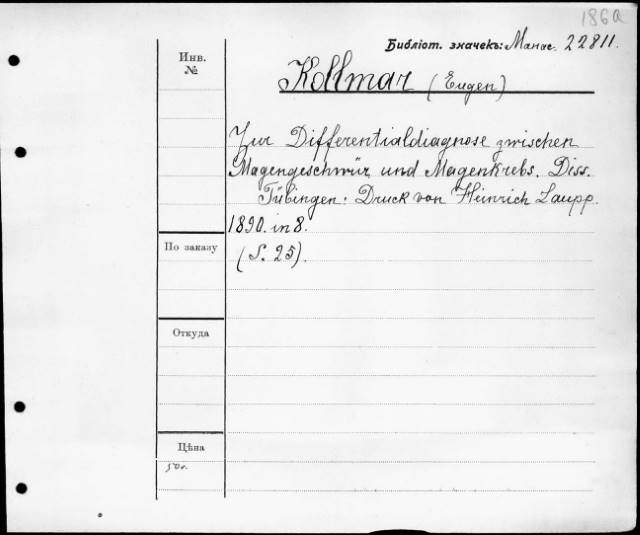 186a
Библіот. значекъ: Манас. 22811.
Инв.
№
Kollmar (Eugen)
Zur Differentialdiagnose zwischen
Magengeschwür und Magenkrebs. Diss.
Tübingen: Druck von Heinrich Laupp.
1890. in 8.
По заказу
(S. 25).
Откуда
Цѣна
50к.